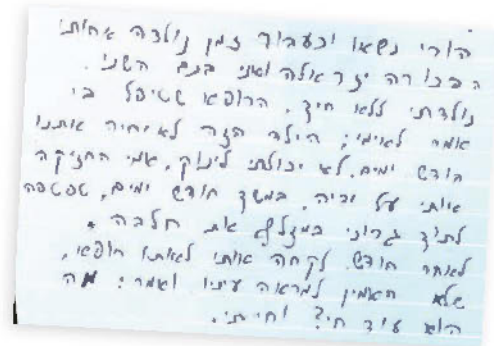 הורי נשאו וכעבור זמן נולדה אחותי
הבכורה יזראלה ואני בנם השני.
נולדתי ללא חיך. הרופא שטיפל בי
אמר לאימי: הילד הזה לא יחיה אותנו
חודש ימים. לא יכולתי לינוק. אמי החזיקה
אותי על ידיה, במשך חודש ימים, טפטפה
לתוך גרוני במזלף את חלבה.
לאחר חודש לקחה אותי לאותו רופא,
שלא האמין למראה עיניו ואמר: מה
הוא עוד חי? וחייתי.